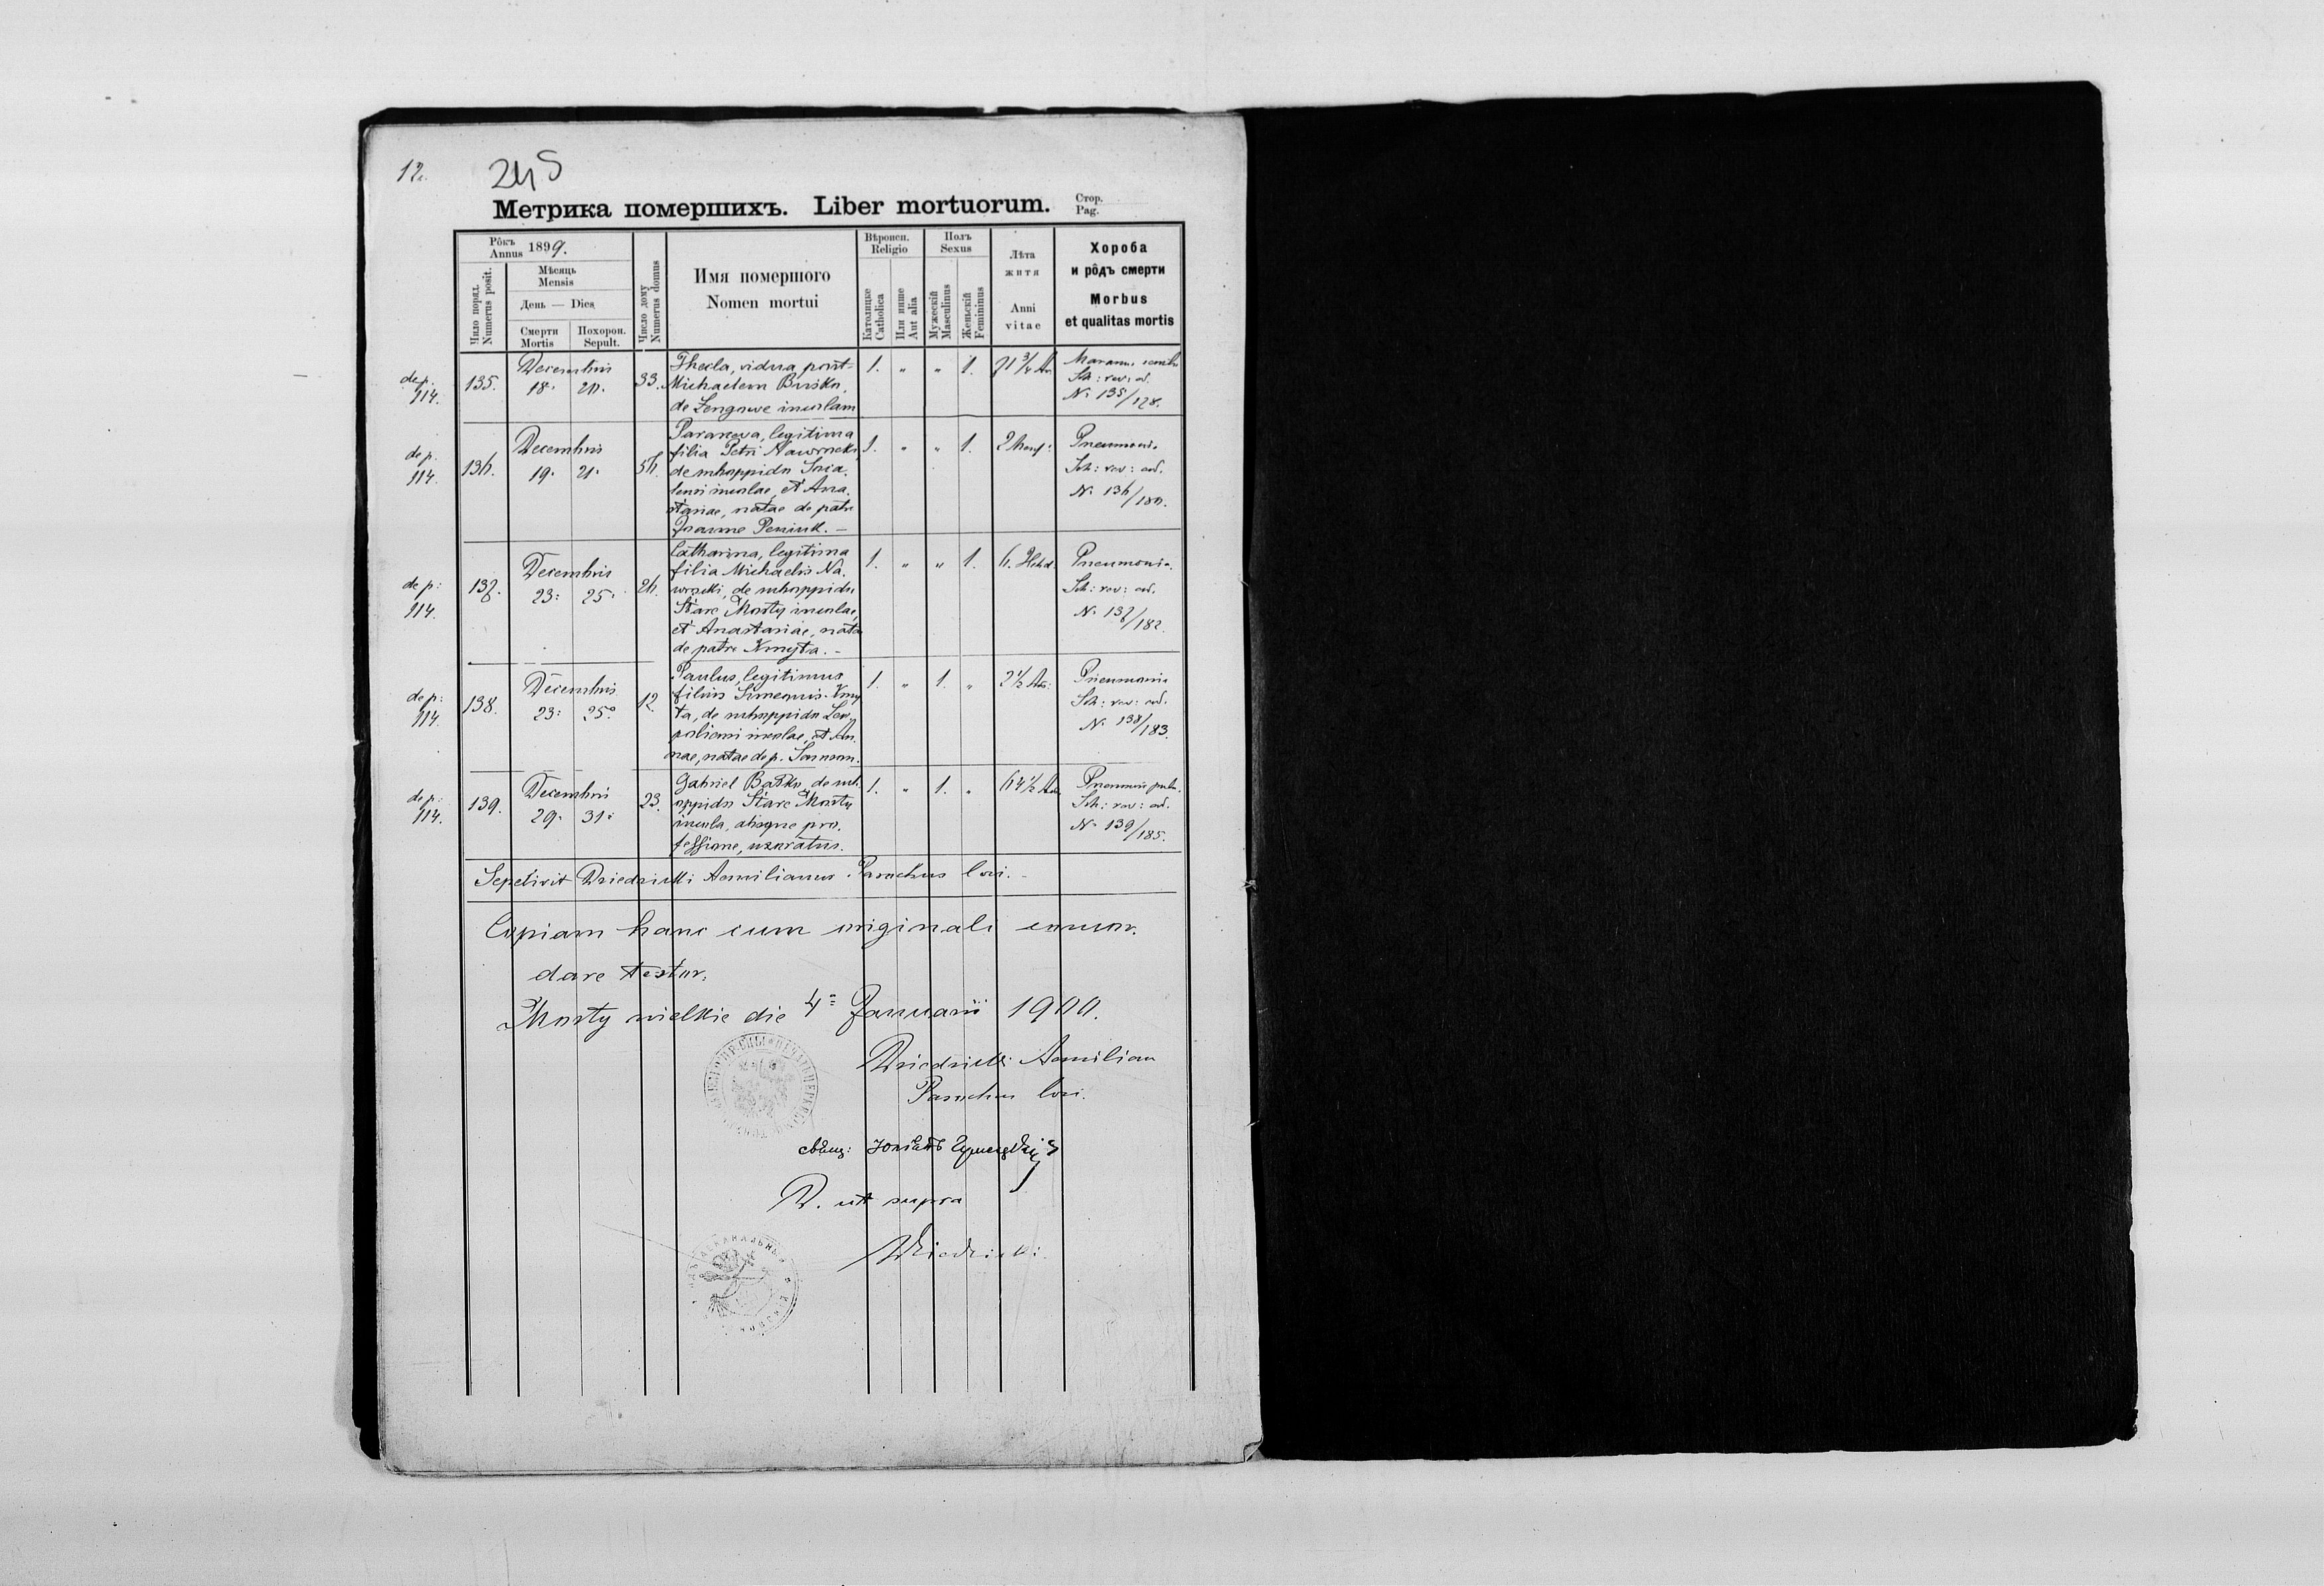 12.
245
Метрика помершихъ. Liber mortuorum.
Стор.
Pag.
Рôкъ
Annus 1899.
Мѣсяць
Mensis
День — Dies
Смерти
Mortis
Похорон.
Sepult.
Число поряд.
Numerus posit.
Число дому
Numerus domus
Имя помершого
Nomen mortui
Вѣроисп.
Religio
Католицке
Catholica
Или инше
Aut alia
Полъ
Sexus
Мужескій
Masculinus
Женьскій
Femininus
Лѣта
житя
Anni
vitae
Хороба
и рôдъ смерти
Morbus
et qualitas mortis
de p.
114.
135.
Decembris
18. 20.
33.
Thecla, vidua post
Michaelem Busko,
de incolam
1. " " 1.
71 3/4 An
Sch: rev: od.
N. 135/178.
de p.
114.
136.
Decembris
19. 21.
56.
Parasceva, legitima
filia Petri Nawrocki,
de suboppido
incolae, et Ana-
stasiae, natae de patre
Joanne
1. " " 1.
2
Pneumonia
Sch: rev: od.
N. 136/180.
de p:
114.
137.
Decembris
23: 25.
26.
Catharina, legitima
filia Michaelis Na-
wrocki, de suboppido
Stare Mosty incolae,
et Anastasiae, nata
de patre Kmyta. -
1. " " 1.
6. Hebd.
Pneumonia
Sch: rev: od.
N. 137/182.
de p:
114.
138.
Decembris
23: 25.
12.
Paulus, legitimus
filius Simeonis Kmy-
ta, de suboppido
incolae, et An-
nae, natae de p.
1. " 1. "
2 1/2 An:
Pneumonia
Sch: rev: od.
N. 138/183.
de p:
114.
139.
Decembris
29. 31.
23.
Gabriel de sub-
oppido Stare Mosty
incola, absque pro-
fessione, uxoratus.
1. " 1. "
64 1/2 An
Sch: rev: od.
N. 139/185.
Sepelivit Dziedzicki Aemilianus Parochus loci. -
Copiam hanc cum originali concor-
dare testor.
Mosty wielkie die 4= Januarii 1900.
Dziedzicki Aemilian
Parochus loci.
свящ:
D. ut supra
Dziedzicki